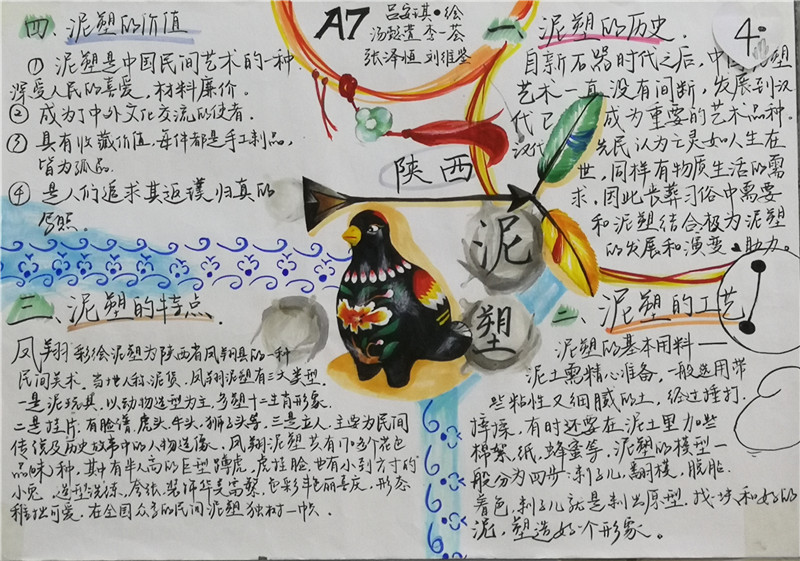 A7
吕安琪·绘
汤懿莲 李一荃
张泽恒 刘维鉴
4
陕西
泥
塑
一 泥塑的历史
自新石器时代之后，中国泥塑
艺术一直没有间断，发展到汉
代已成为重要的艺术品种.
汉代先民认为亡灵如人生在
世，同样有物质生活的需
求，因此丧葬习俗中需要
和泥塑结合,极为泥塑
的发展和演变 助力。
二、泥塑的工艺
泥塑的基本用料——
泥土需精心准备，一般选用带
些粘性又细腻的土，经过捶打、
摔揉，有时还要在泥土里加些
棉絮、纸、蜂蜜等，泥塑的模型一
般分为四步:制子儿，翻模，脱胎，
着色，制子儿就是制出原型，找一块和好的
泥，塑造好一个形象。
三、泥塑的特点.
凤翔彩绘泥塑为陕西省凤翔县的一种
民间美术，当地人称泥货，凤翔泥塑有三大类型.
一是泥玩具，以动物造型为主，多塑十二生肖形象.
二是挂片，有脸谱、虎头、牛头、狮子头等，三是立人，主要为民间
传说及历史故事中的人物造像，凤翔泥塑共有170多个花色
品种，其中有半人高的巨型蹲虎，虎挂脸，也有小到方寸的
小兔，造型洗练，夸张，装饰华美富繁，色彩艳丽喜庆，形态
稚拙可爱，在全国众多的民间泥塑独树一帜.
四、泥塑的价值
① 泥塑是中国民间艺术的一种
深受人民的喜爱，材料廉价。
② 成为了中外文化交流的使者.
③ 具有收藏价值，每件都是手工制品，
皆为孤品.
④ 是人们追求其返璞归真的
写照.